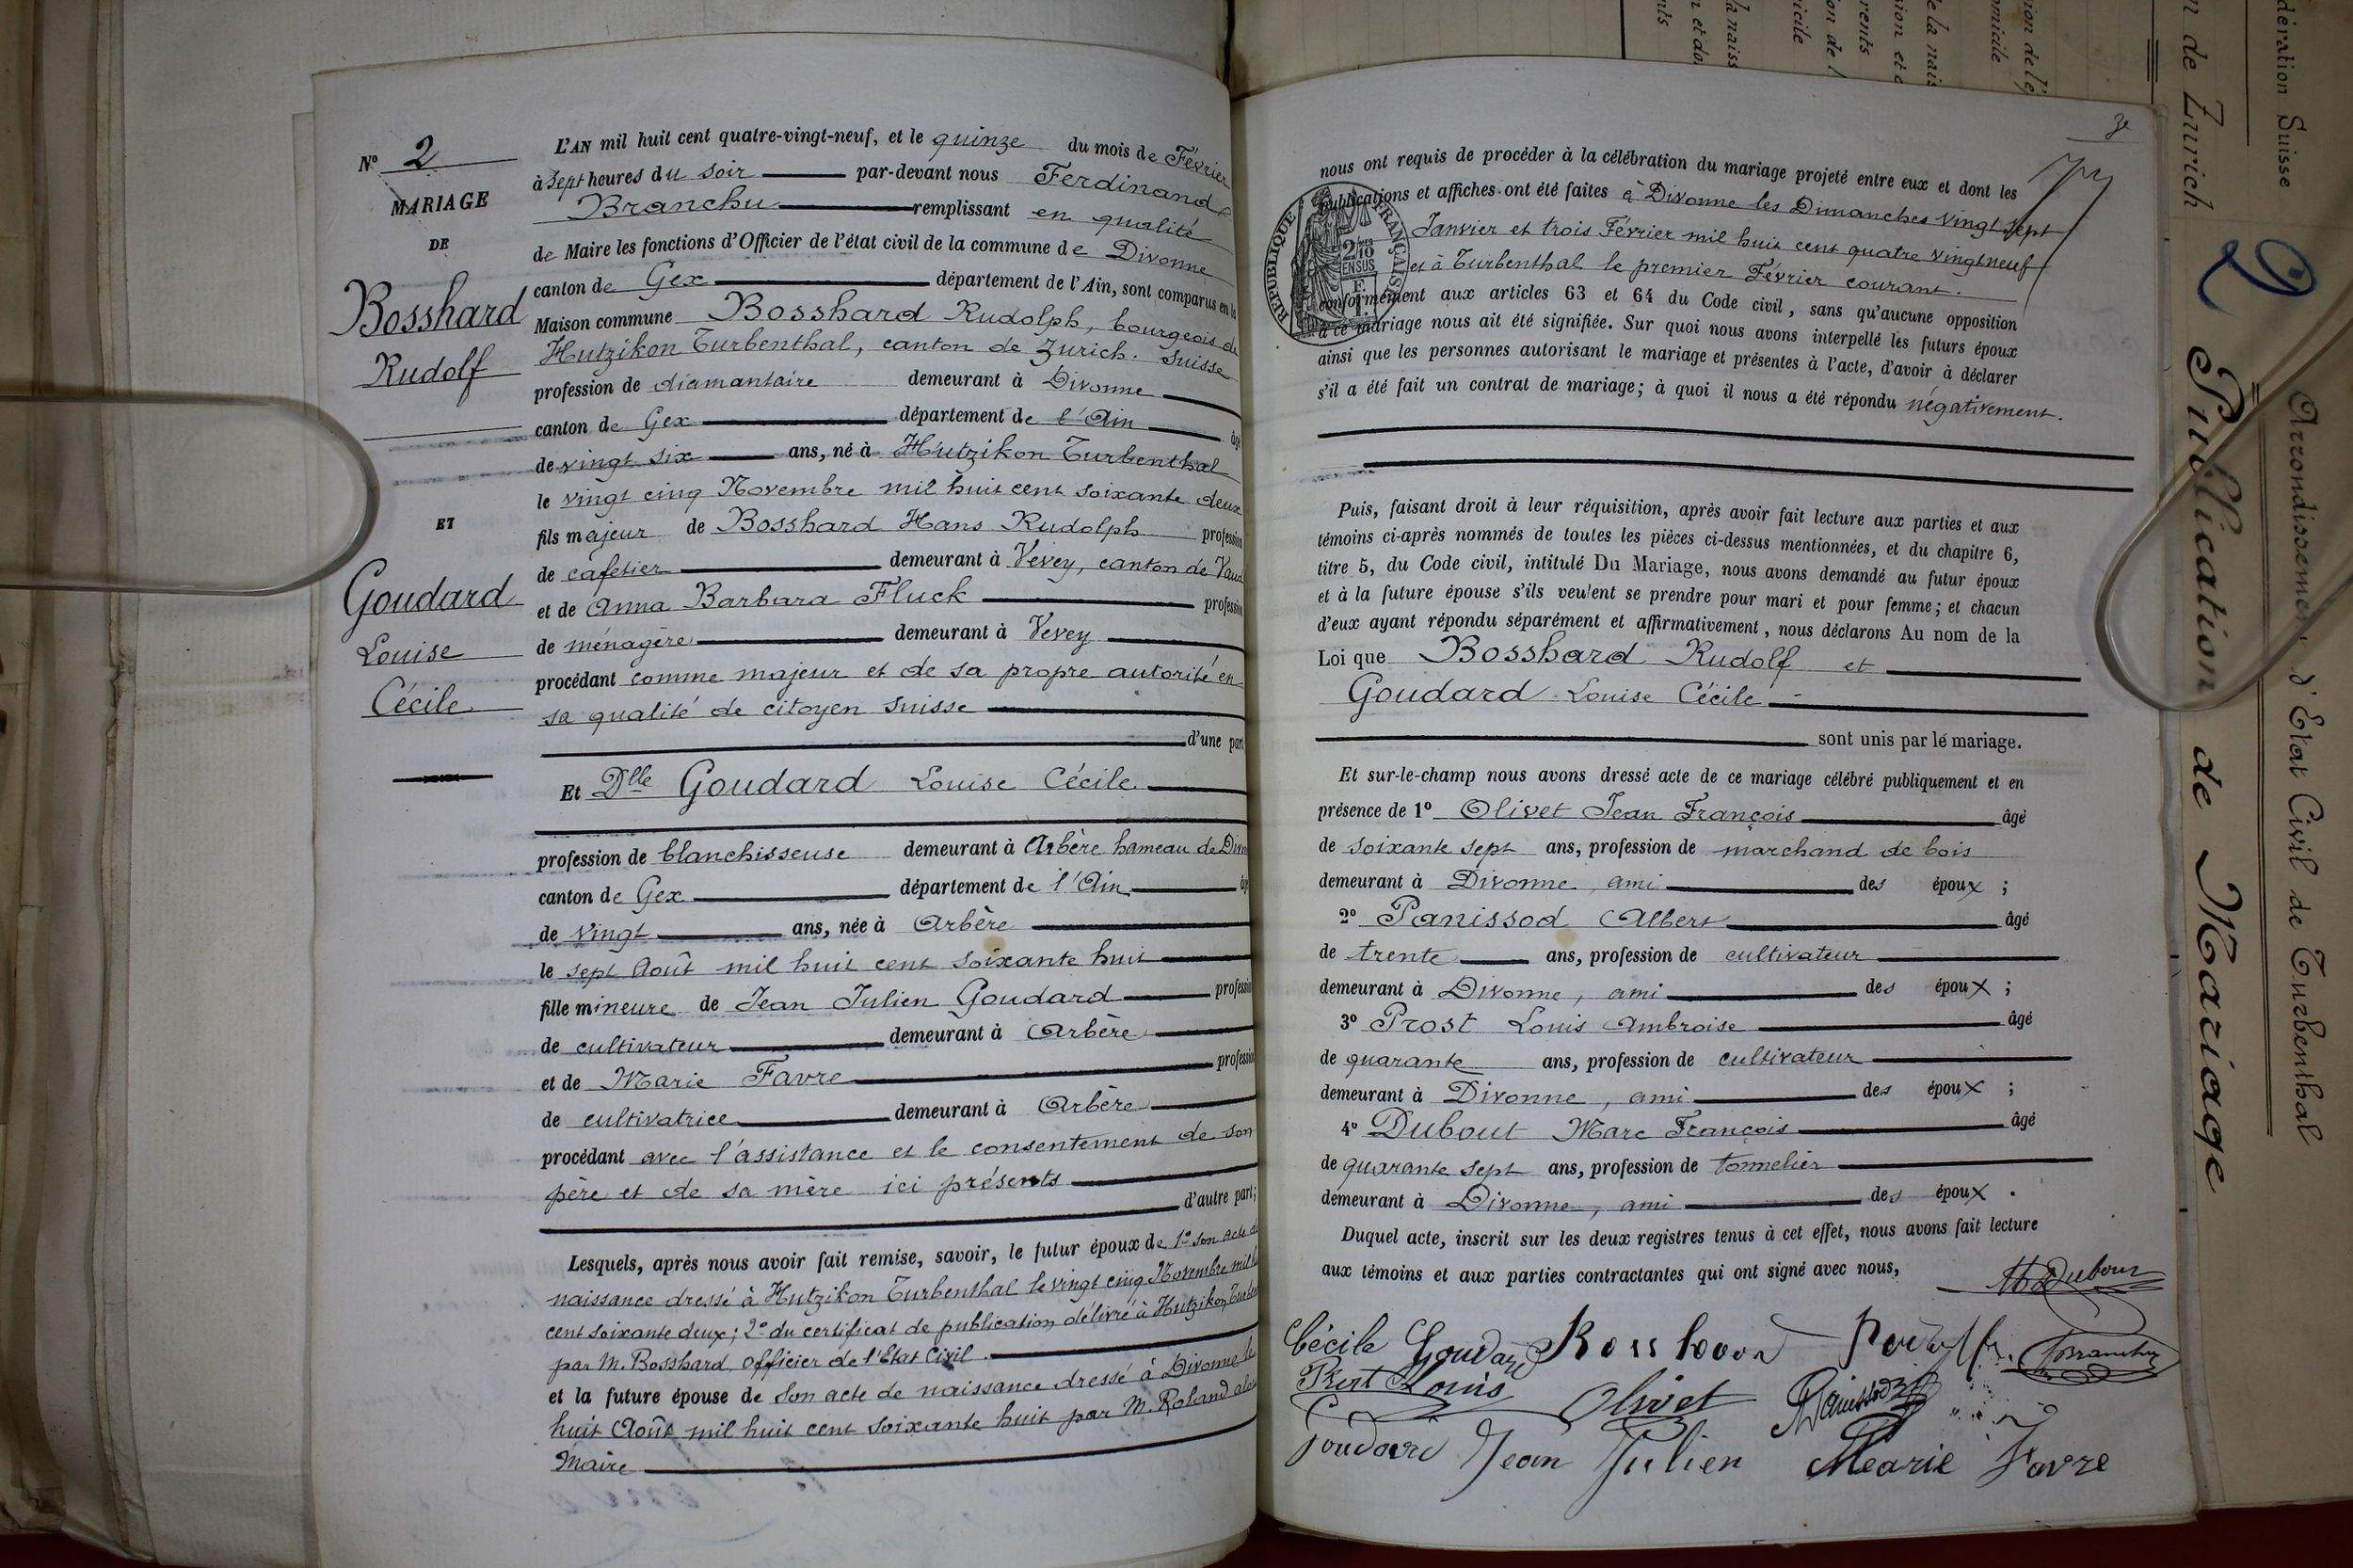 N° 2
MARIAGE
DE
Bosshard
Rudolf
ET
Goudard
Louise
Cécile
L'AN mil huit cent quatre-vingt-neuf, et le quinze du mois de Février
à sept heures du soir par-devant nous Ferdinand
Branchu remplissant en qualité
de Maire les fonctions d'Officier de l'état civil de la commune de Divonne
canton de Gex département de l'Ain, sont comparus en la
Maison commune Bosshard Rudolph, bourgeois de
Hutzikon Turbenthal, canton de Zurich. Suisse
profession de diamantaire demeurant à Divonne
canton de Gex département de l'Ain âgé
de vingt six ans, né à Hutzikon Turbenthal
le vingt cinq Novembre mil huit cent soixante deux
fils majeur de Bosshard Hans Rudolph profession
de cafetier demeurant à Vevey, canton de Vaud
et de Anna Barbara Fluck profession
de ménagère demeurant à Vevey
procédant comme majeur et de sa propre autorité en
sa qualité de citoyen suisse
d'une part
Et Dlle Goudard Louise Cécile
profession de blanchisseuse demeurant à Arbère hameau de Divon
canton de Gex département de l'Ain âg
de vingt ans, née à Arbère
le sept Août mil huit cent soixante huit
fille mineure de Jean Julien Goudard profession
de cultivateur demeurant à Arbère
et de Marie Favre profession
de cultivatrice demeurant à Arbère
procédant avec l'assistance et le consentement de son
père et de sa mère ici présents
d'autre part;
Lesquels, après nous avoir fait remise, savoir, le futur époux de 1° son acte de
naissance dressé à Hutzikon Turbenthal le vingt cinq Novembre mil h
cent soixante deux; 2° du certificat de publication délivré à Hutzikon Turben
par M. Bosshard, officier de l'Etat Civil.
et la future épouse de son acte de naissance dressé à Divonne le
huit Août mil huit cent soixante huit par M. Roland alors
Maire
3e
nous ont requis de procéder à la célébration du mariage projeté entre eux et dont les
publications et affiches ont été faites à Divonne les Dimanches vingt sept
Janvier et trois Février mil huit cent quatre vingt neuf
et à Turbenthal le premier Février courant.
conformément aux articles 63 et 64 du Code civil, sans qu'aucune opposition
à ce mariage nous ait été signifiée. Sur quoi nous avons interpellé les futurs époux
ainsi que les personnes autorisant le mariage et présentes à l'acte, d'avoir à déclarer
s'il a été fait un contrat de mariage; à quoi il nous a été répondu négativement.
RÉPUBLIQUE FRANÇAISE
Puis, faisant droit à leur réquisition, après avoir fait lecture aux parties et aux
témoins ci-après nommés de toutes les pièces ci-dessus mentionnées, et du chapitre 6,
titre 5, du Code civil, intitulé Du Mariage, nous avons demandé au futur époux
et à la future épouse s'ils veulent se prendre pour mari et pour femme; et chacun
d'eux ayant répondu séparément et affirmativement, nous déclarons Au nom de la
Loi que Bosshard Rudolf et
Goudard Louise Cécile
sont unis par le mariage.
Et sur-le-champ nous avons dressé acte de ce mariage célébré publiquement et en
présence de 1° Olivet Jean François âgé
de soixante sept ans, profession de marchand de bois
demeurant à Divonne, ami des époux ;
2° Panissod Albert âgé
de trente ans, profession de cultivateur
demeurant à Divonne, ami des époux ;
3° Prost Louis Ambroise âgé
de quarante ans, profession de cultivateur
demeurant à Divonne, ami des époux ;
4° Dubout Marc François âgé
de quarante sept ans, profession de tonnelier
demeurant à Divonne, ami des époux .
Duquel acte, inscrit sur les deux registres tenus à cet effet, nous avons fait lecture
aux témoins et aux parties contractantes qui ont signé avec nous,
Cécile Goudard
Branchu
Prost Louis
Olivet
Goudard Jean Julien Marie Favre
dération Suisse
n de Zurich
Arrondissement d'Etat Civil de Turbenthal
Publication de Mariage